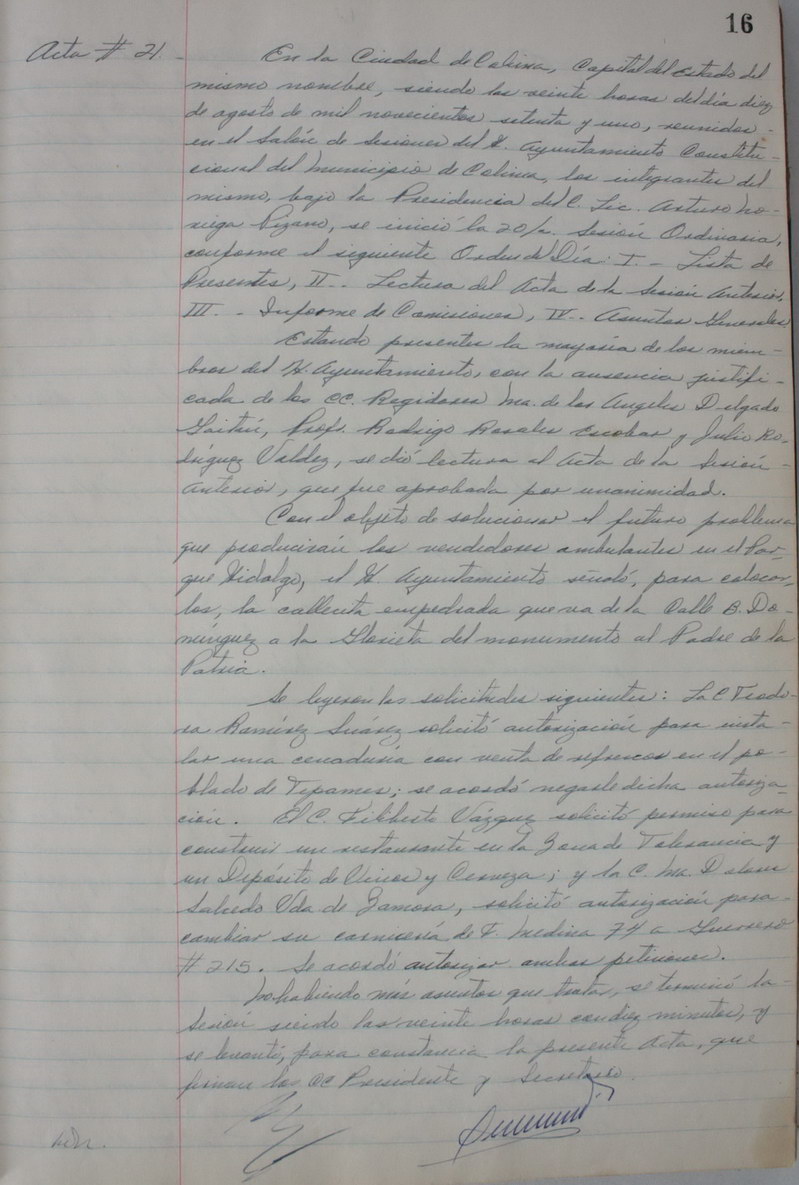 16
Acta # 21.
En la Ciudad de Colima, Capital del Estado del
mismo nombre, siendo las veinte horas del día diez
de agosto de mil novecientos setenta y uno, reunidos -
en el Salón de Sesiones del H. Ayuntamiento Constitu-
cional del Municipio de Colima, los integrantes del
mismo, bajo la Presidencia del C. Lic. Arturo No-
riega Pizano, se inició la 20/a. Sesión Ordinaria,
conforme el siguiente Orden del Día: I.- Lista de
Presentes, II.- Lectura del Acta de la Sesión Anterior,
III.- Informe de Comisiones, IV.- Asuntos Generales
Estando presentes la mayoría de los miem-
bros del H. Ayuntamiento, con la ausencia justifi-
cada de los CC. Regidores Ma. de los Angeles Delgado
Gaitán, Profr. Rodrigo Rosales Escobar y Julio Ro-
dríguez Valdez, se dió lectura al Acta de la Sesión -
Anterior, que fue aprobada por unanimidad.
Con el objeto de solucionar el futuro problema
que producirán los vendedores ambulantes en el Par-
que Hidalgo, el H. Ayuntamiento señaló, para colocar-
los, la callecita empedrada que va de la Calle B. Do-
mínguez a la Glorieta del monumento al Padre de la
Patria.
Se leyeron las solicitudes siguientes: La C. Teodo-
ra Ramírez Suárez solicitó autorización para insta-
lar una cenaduría con venta de refrescos en el po-
blado de Tepames; se acordó negarle dicha autoriza-
ción. El C. Filiberto Vázquez solicitó permiso para
construir un restaurante en la Zona de Tolerancia y
un Depósito de Vinos y Cerveza; y la C. Ma. Dolores
Salcedo Vda. de Zamora, solicitó autorización para -
cambiar su carnicería de F. Medina 74 a Guerrero
# 215. Se acordó autorizar ambas peticiones.
No habiendo más asuntos que tratar, se terminó la -
Sesión siendo las veinte horas con diez minutos, y
se levantó, para constancia la presente Acta, que
firman los CC Presidente y Secretario.